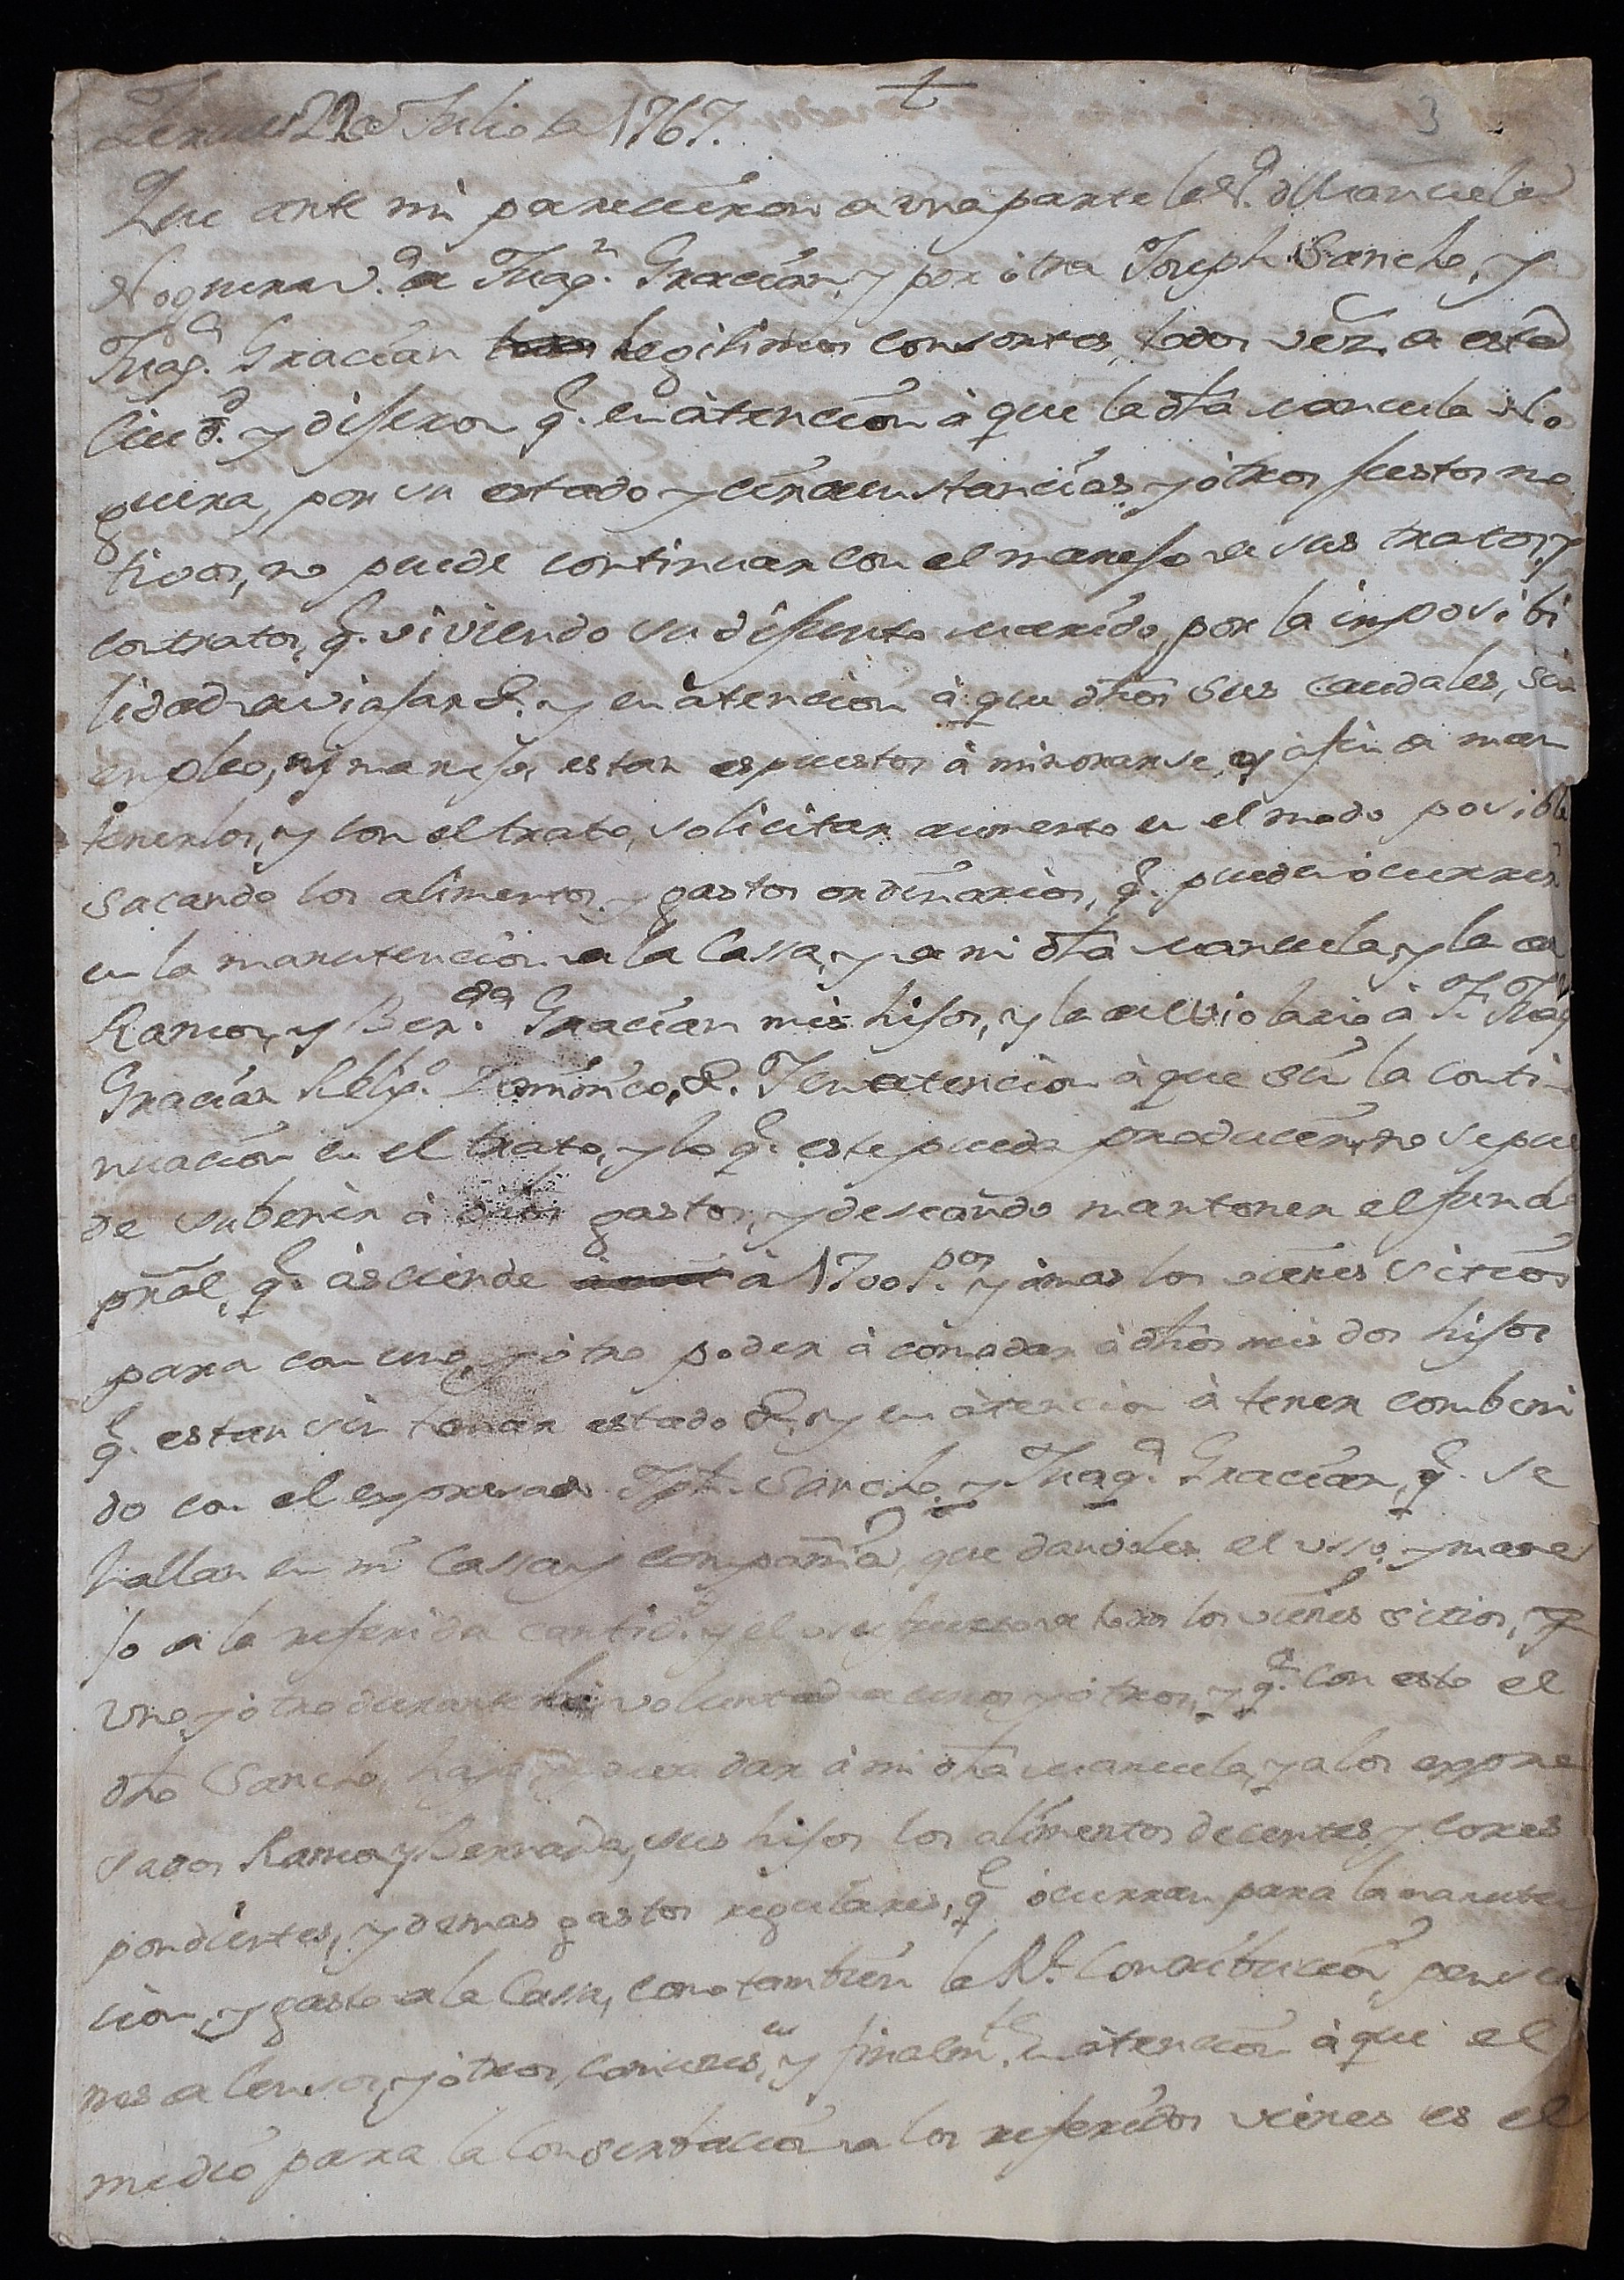 t
3
Teruel 22 de Julio de 1767.
Que ante mi parecieron de una parte la Sª. Manuela
Noguera v.ª de Juaq.n Gracian, y por ótra Joseph Sancho, y
Juaq.ª Gracian legitimos consortes, todos vez.s de esta
Ciud.d y dijeron q.e en àtencion à que la dha Manuela No
guera, por su estado y circunstancias y ótros justos mo
tivos, no puede continuar con el manejo de sus tratos, y
contratos, q.e viviendo su difunto marido, por la imposibi
lidad de viajar &. y en àtencion à que dhos sus caudales, sin
empleo, ny manejo, estan espuestos à minorarse, y àfin de man
tenerlos, y con el trato, solicitar aumento en el modo posible
sacando los alimentos, y gastos ordinarios, q.e pueden òcurrir
en la manutencion de la Cassa, y de mi dha Manuela, y la de
Ramon, y Ber.da Gracian mis hijos, y la à F. Juaq
Gracian Relig.o Dominico, &. Y en atencion à que sin la conti
nuacion en el trato, y lo q.e este pueda producir, no se pue
de subenir à dhos gastos, y deseando mantener el fundo
pral, q.e àsciende à 1700 P.os y àmas los vienes sitios
para con uno, y òtro poder àcomodar à dhos mis dos hijos
q.e estan sin tomar estado &, y en àtencion à tener combeni
do con el expresado Jph. Sancho, y Juaq.ª Gracian, q.e se
hallan en mi Cassa y compañia, que dandoles el uso, y mane
jo de la referida cantid.d y el usufructo de todos los vienes sitios, y
uno, y òtro durante la voluntad de unos y òtros, y q.e con esto el
dho Sancho, haya, de dar à mi dha Manuela, y a los expre
sados Ramon y Bernarda, mis hijos los alimentos decentes, y corres
pondientes, y demas gastos regulares, q.e òcurran para la manuten
cion, y gasto de la Cassa, como tambien la R.l Contribucion, pensio
nes de censos, y òtros, comunes, y finalm.te en àtencion à que el
medio para la Conserbacion de los referidos vienes es el